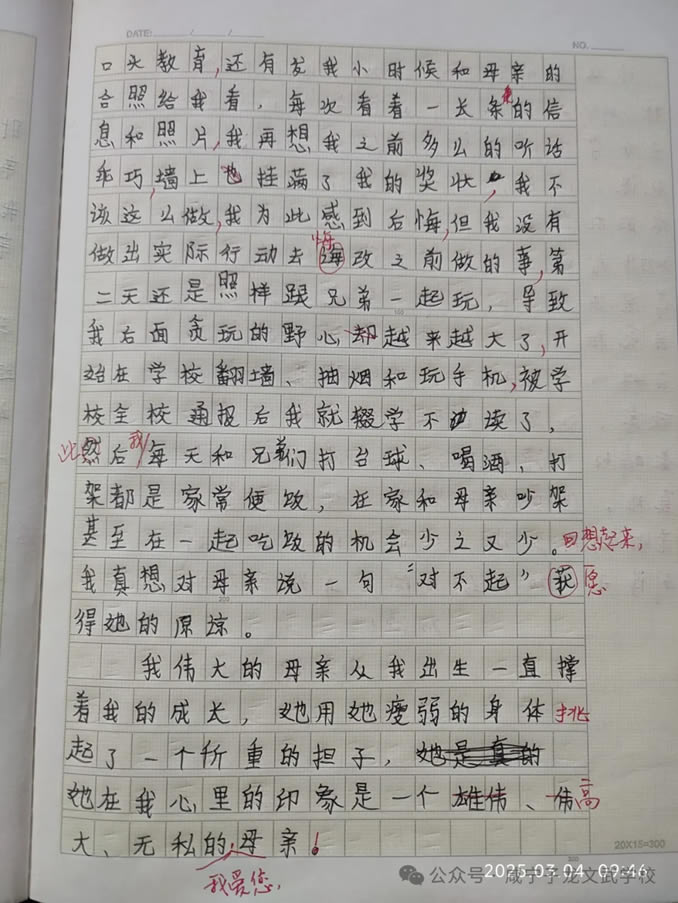 DATE: / /
NO.
口头教育,还有发我小时候和母亲的
合照给我看,每次看着一长条的信
息和照片,我再想我之前多么的听话
乖巧,墙上也挂满了我的奖状,我不
该这么做,我为此感到后悔,但我没有
做出实际行动去悔改之前做的事,第
二天还是照样跟兄弟一起玩,导致
我后面贪玩的野心却越来越大了,开
始在学校翻墙、抽烟和玩手机,被学
校全校通报后我就辍学不读了,
此然后我每天和兄弟们打台球、喝酒、打
架都是家常便饭,在家和母亲吵架
甚至在一起吃饭的机会少之又少。回想起来,
我真想对母亲说一句“对不起”获愿
得她的原谅。
我伟大的母亲从我出生一直撑
着我的成长,她用她瘦弱的身体挑
起了一个所重的担子,她是真的
她在我心里的印象是一个雄伟、伟高
大、无私的母亲!
我爱您,
20X15=300
公众号·咸宁子龙文武学校
2025.03.04 09:46